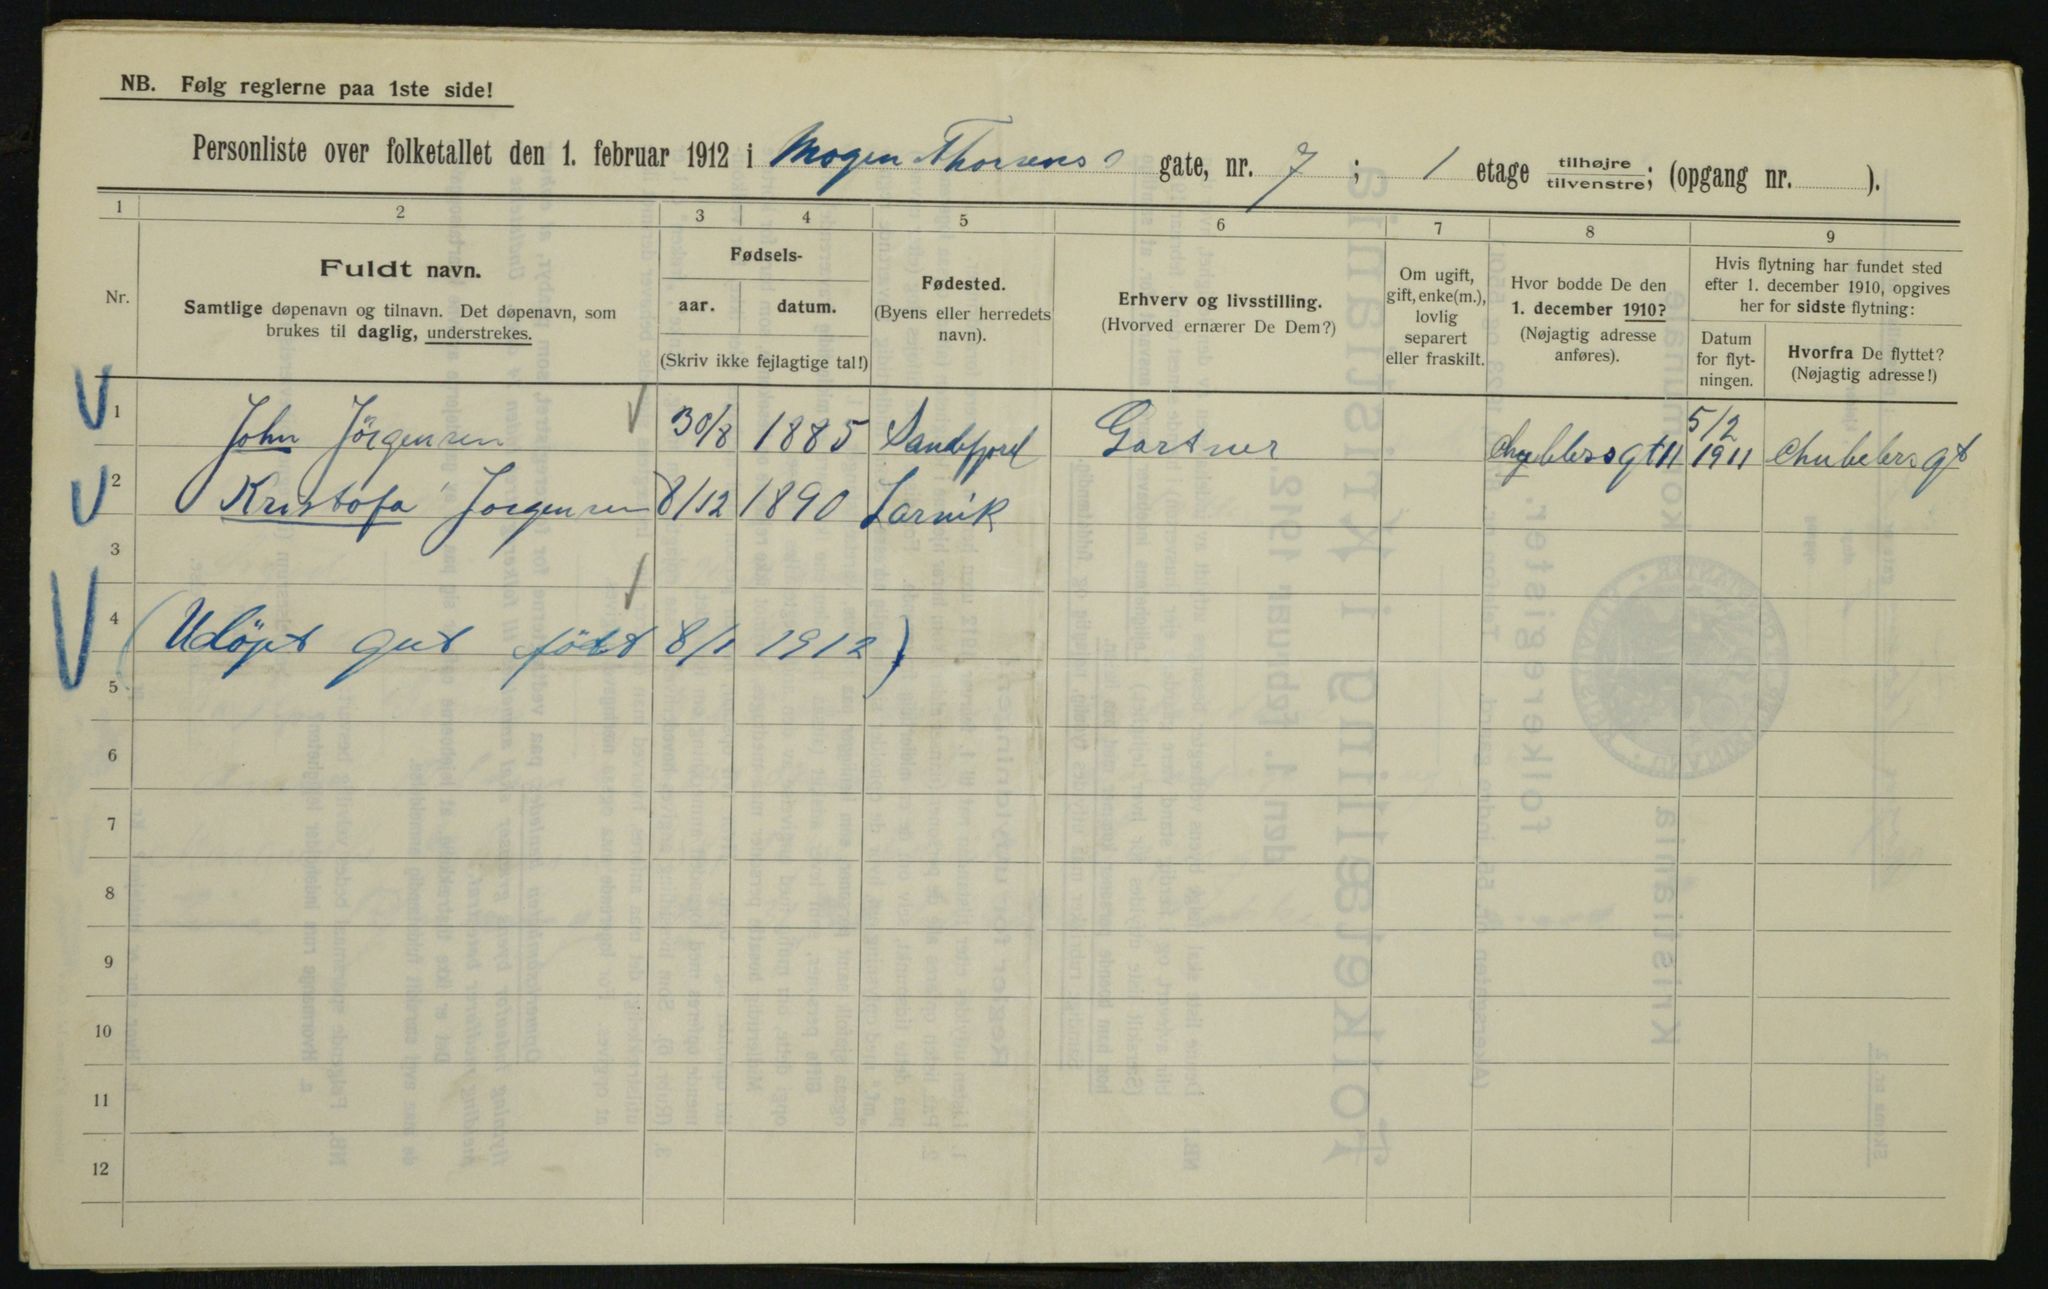 NB. Følg reglerne paa 1ste side!
Personliste over folketallet den 1. februar 1912 i Mogen Thorsens gate, nr. 7 ; 1 etage tilhøjre/tilvenstre; (opgang nr. ).
1 2 3 4 5 6 7 8 9
Nr.
Fuldt navn.
Samtlige døpenavn og tilnavn. Det døpenavn, som
brukes til daglig, understrekes.
Fødsels-
aar. datum.
(Skriv ikke fejlagtige tal!)
Fødested.
(Byens eller herredets
navn).
Erhverv og livsstilling.
(Hvorved ernærer De Dem?)
Om ugift,
gift, enke(m.),
lovlig
separert
eller fraskilt.
Hvor bodde De den
1. december 1910?
(Nøjagtig adresse
anføres).
Hvis flytning har fundet sted
efter 1. december 1910, opgives
her for sidste flytning:
Datum
for flyt-
ningen.
Hvorfra De flyttet?
(Nøjagtig adresse!)
1 John Jörgensen 30/8 1885 Sandefjord Gartner 5/2 1911
2 Kristofa Jorgensen 8/12 1890 Larvik
3
4 (Udöpt gut födt 8/1 1912)
5
6
7
8
9
10
11
12